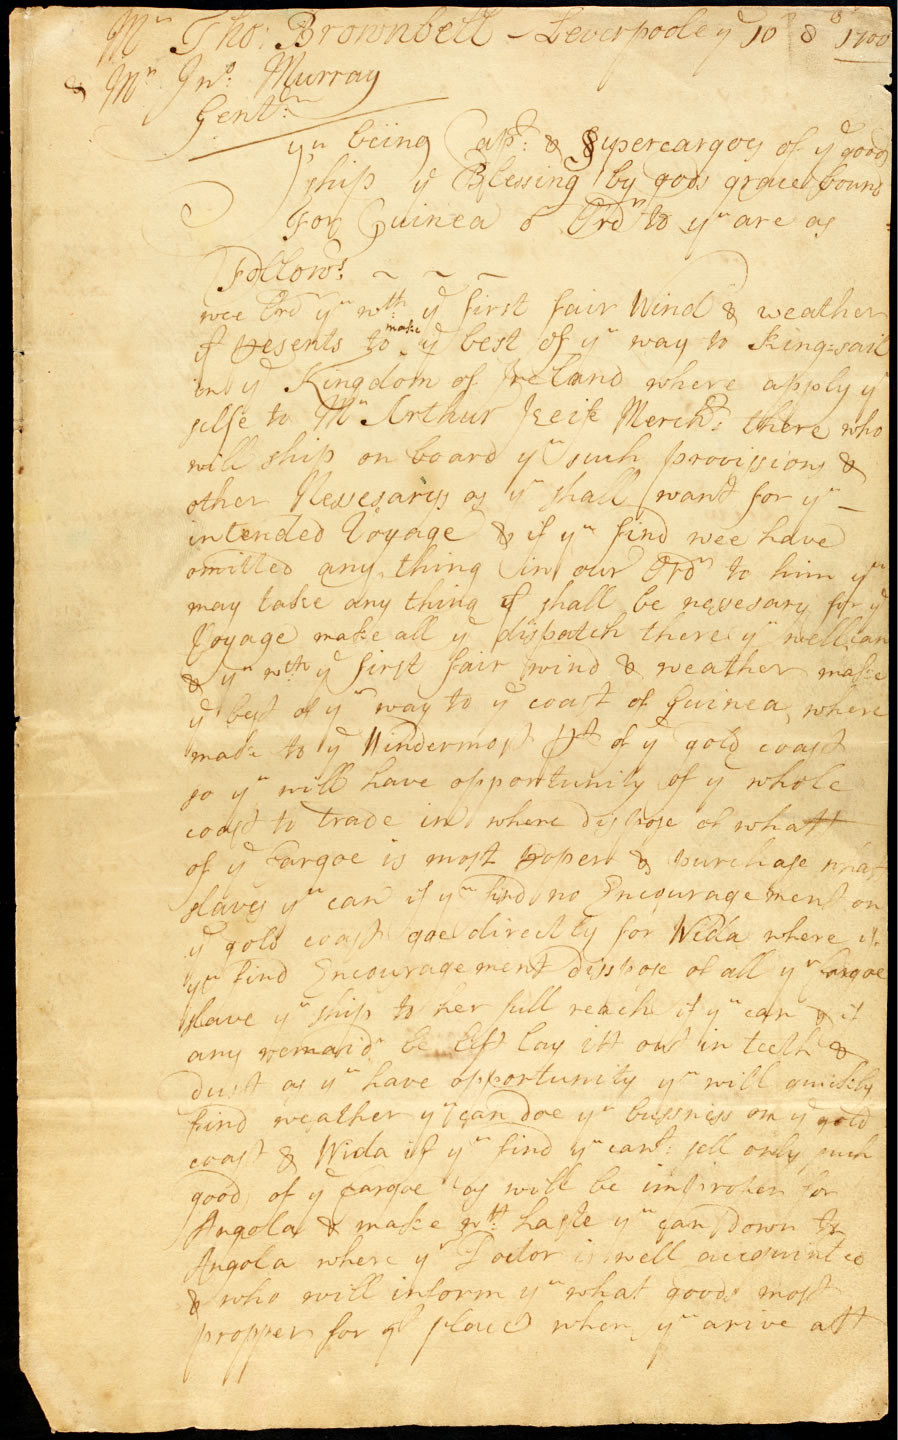 Mr Tho: Brownbell - Leverpoole ye 10 8 1700
& Mr Jno: Murray
Gentn
yu biing Capt: & Supercargoes of ye good
ship ye Blessing by gods grace bound
For Guinea or Ordrs to yu are as
Follows ~ ~ ~
wee Ordr yu wth: ye first fair Wind & weather
yt Presents to make ye best of yr way to King=sail
in ye Kingdom of Ireland where apply yr
selfe to Mr Arthur Mercht: there who
will ship on board yu such provisions &
other Nessesarys as yu shall want for yr
intended Voyage & if yu find wee have
omitted any thing in our Ordr to him yu
may take any thing yt shall be nessesary for ye
Voyage make all ye dispatch there yu well can
& yn wth ye first fair wind & weather make
ye best of yr way to ye coast of Guinea where
make to ye Windermost Pt of ye gold coast
so yu will have opportunity of ye whole
coast to trade in where dispose of whatt
of ye Cargoe is most proper & purchase what
slaves yu can if yu find no Encouragement on
ye gold coast goe directly for Wida where if
yu find Encouragement dispose of all yr Cargoe
slave yr ship to her full reach if yu can & if
any remaindr be left lay itt out in teeth &
dust as yu have opportunity yu will quickly
find weather yu can doe yr bussness on ye gold
coast & Wida if yu find yu cant: sell only such
good of ye cargoe as will be improper for
Angola & make wtt haste yu can down to
Angola where yr Doctor is well accquinted
& who will inform yu what goods most
propper for yt place when yu arive att